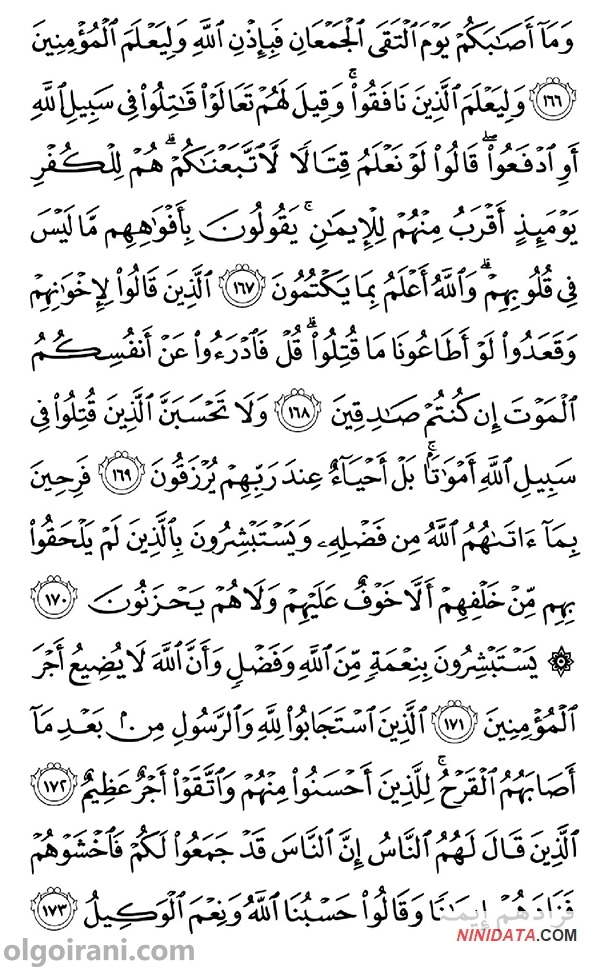 وَمَآ أَصَٰبَكُمۡ يَوۡمَ ٱلۡتَقَى ٱلۡجَمۡعَانِ فَبِإِذۡنِ ٱللَّهِ وَلِيَعۡلَمَ ٱلۡمُؤۡمِنِينَ
١٦٦ وَلِيَعۡلَمَ ٱلَّذِينَ نَافَقُواْۚ وَقِيلَ لَهُمۡ تَعَالَوۡاْ قَٰتِلُواْ فِي سَبِيلِ ٱللَّهِ
أَوِ ٱدۡفَعُواْۖ قَالُواْ لَوۡ نَعۡلَمُ قِتَالٗا لَّٱتَّبَعۡنَٰكُمۡۗ هُمۡ لِلۡكُفۡرِ
يَوۡمَئِذٍ أَقۡرَبُ مِنۡهُمۡ لِلۡإِيمَٰنِۚ يَقُولُونَ بِأَفۡوَٰهِهِم مَّا لَيۡسَ
فِي قُلُوبِهِمۡۚ وَٱللَّهُ أَعۡلَمُ بِمَا يَكۡتُمُونَ ١٦٧ ٱلَّذِينَ قَالُواْ لِإِخۡوَٰنِهِمۡ
وَقَعَدُواْ لَوۡ أَطَاعُونَا مَا قُتِلُواْۗ قُلۡ فَٱدۡرَءُواْ عَنۡ أَنفُسِكُمُ
ٱلۡمَوۡتَ إِن كُنتُمۡ صَٰدِقِينَ ١٦٨ وَلَا تَحۡسَبَنَّ ٱلَّذِينَ قُتِلُواْ فِي
سَبِيلِ ٱللَّهِ أَمۡوَٰتَۢاۚ بَلۡ أَحۡيَآءٌ عِندَ رَبِّهِمۡ يُرۡزَقُونَ ١٦٩ فَرِحِينَ
بِمَآ ءَاتَىٰهُمُ ٱللَّهُ مِن فَضۡلِهِۦ وَيَسۡتَبۡشِرُونَ بِٱلَّذِينَ لَمۡ يَلۡحَقُواْ
بِهِم مِّنۡ خَلۡفِهِمۡ أَلَّا خَوۡفٌ عَلَيۡهِمۡ وَلَا هُمۡ يَحۡزَنُونَ ١٧٠
۞ يَسۡتَبۡشِرُونَ بِنِعۡمَةٖ مِّنَ ٱللَّهِ وَفَضۡلٖ وَأَنَّ ٱللَّهَ لَا يُضِيعُ أَجۡرَ
ٱلۡمُؤۡمِنِينَ ١٧١ ٱلَّذِينَ ٱسۡتَجَابُواْ لِلَّهِ وَٱلرَّسُولِ مِنۢ بَعۡدِ مَآ
أَصَابَهُمُ ٱلۡقَرۡحُۚ لِلَّذِينَ أَحۡسَنُواْ مِنۡهُمۡ وَٱتَّقَوۡاْ أَجۡرٌ عَظِيمٌ ١٧٢
ٱلَّذِينَ قَالَ لَهُمُ ٱلنَّاسُ إِنَّ ٱلنَّاسَ قَدۡ جَمَعُواْ لَكُمۡ فَٱخۡشَوۡهُمۡ
فَزَادَهُمۡ إِيمَٰنٗا وَقَالُواْ حَسۡبُنَا ٱللَّهُ وَنِعۡمَ ٱلۡوَكِيلُ ١٧٣
NINIDATA.COM
olgoirani.com